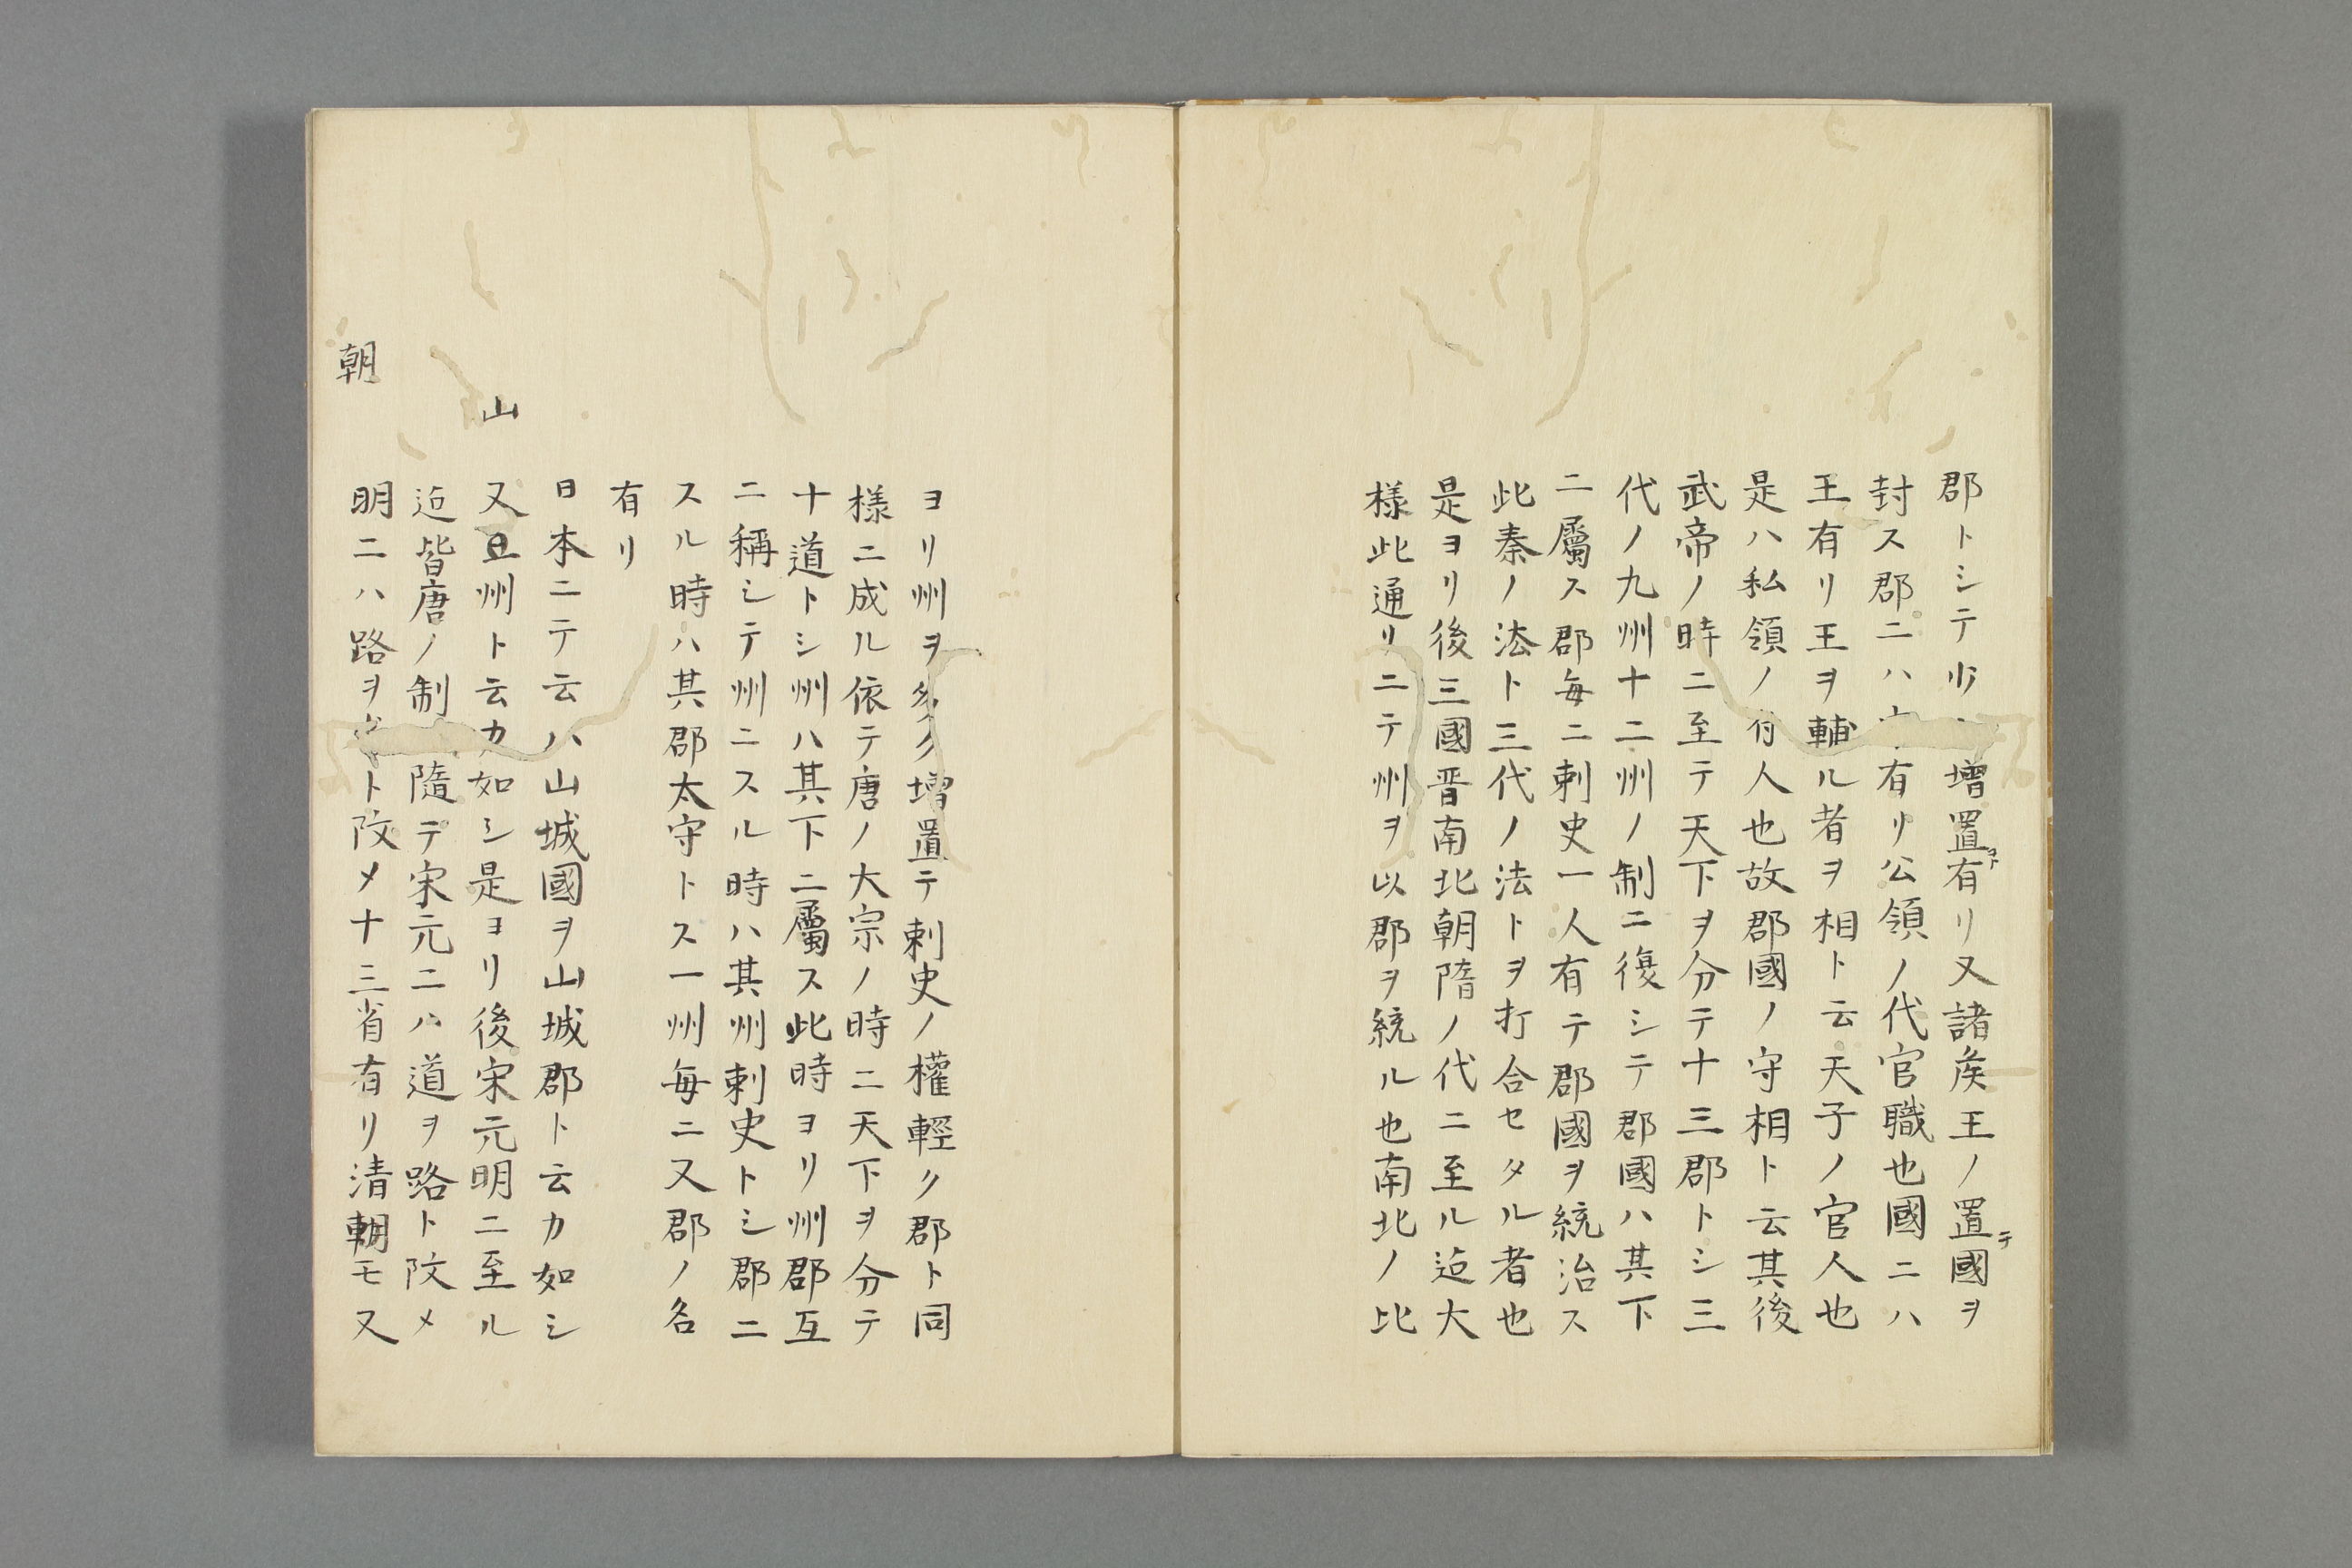 郡トシテ少増置ヿト有リ又諸矦王ノ置テ國ヲ
封ス郡ニハ有リ公領ノ代官職也國ニハ
王有リ王ヲ輔ル者ヲ相ト云天子ノ官人也
是ハ私領ノ付人也故郡國ノ守相ト云其後
武帝ノ時ニ至テ天下ヲ分テ十三郡トシ三
代ノ九州十二州ノ制ニ復シテ郡國ハ其下
ニ屬ス郡毎ニ刺史一人有テ郡國ヲ統治ス
此秦ノ法ト三代ノ法トヲ打合セタル者也
是ヨリ後三國晋南北朝隋ノ代ニ至ル迠大
様此通リニテ州ヲ以郡ヲ統ル也南北ノ比
ヨリ州ヲ多ク増置テ刺史ノ權輕ク郡ト同
様ニ成ル依テ唐ノ大宗ノ時ニ天下ヲ分テ
十道トシ州ハ其下ニ屬ス此時ヨリ州郡互
ニ稱シテ州ニスル時ハ其州刺史トシ郡ニ
スル時ハ其郡太守トス一州毎ニ又郡ノ名
有リ
日本ニテ云ハ山城國ヲ山城郡ト云カ如シ
山
又州ト云カ如シ是ヨリ後宋元明ニ至ル
迠皆唐ノ制隨テ宋元ニハ道ヲ路ト改メ
朝
明ニハ路ヲト改メ十三省有リ清朝モ又